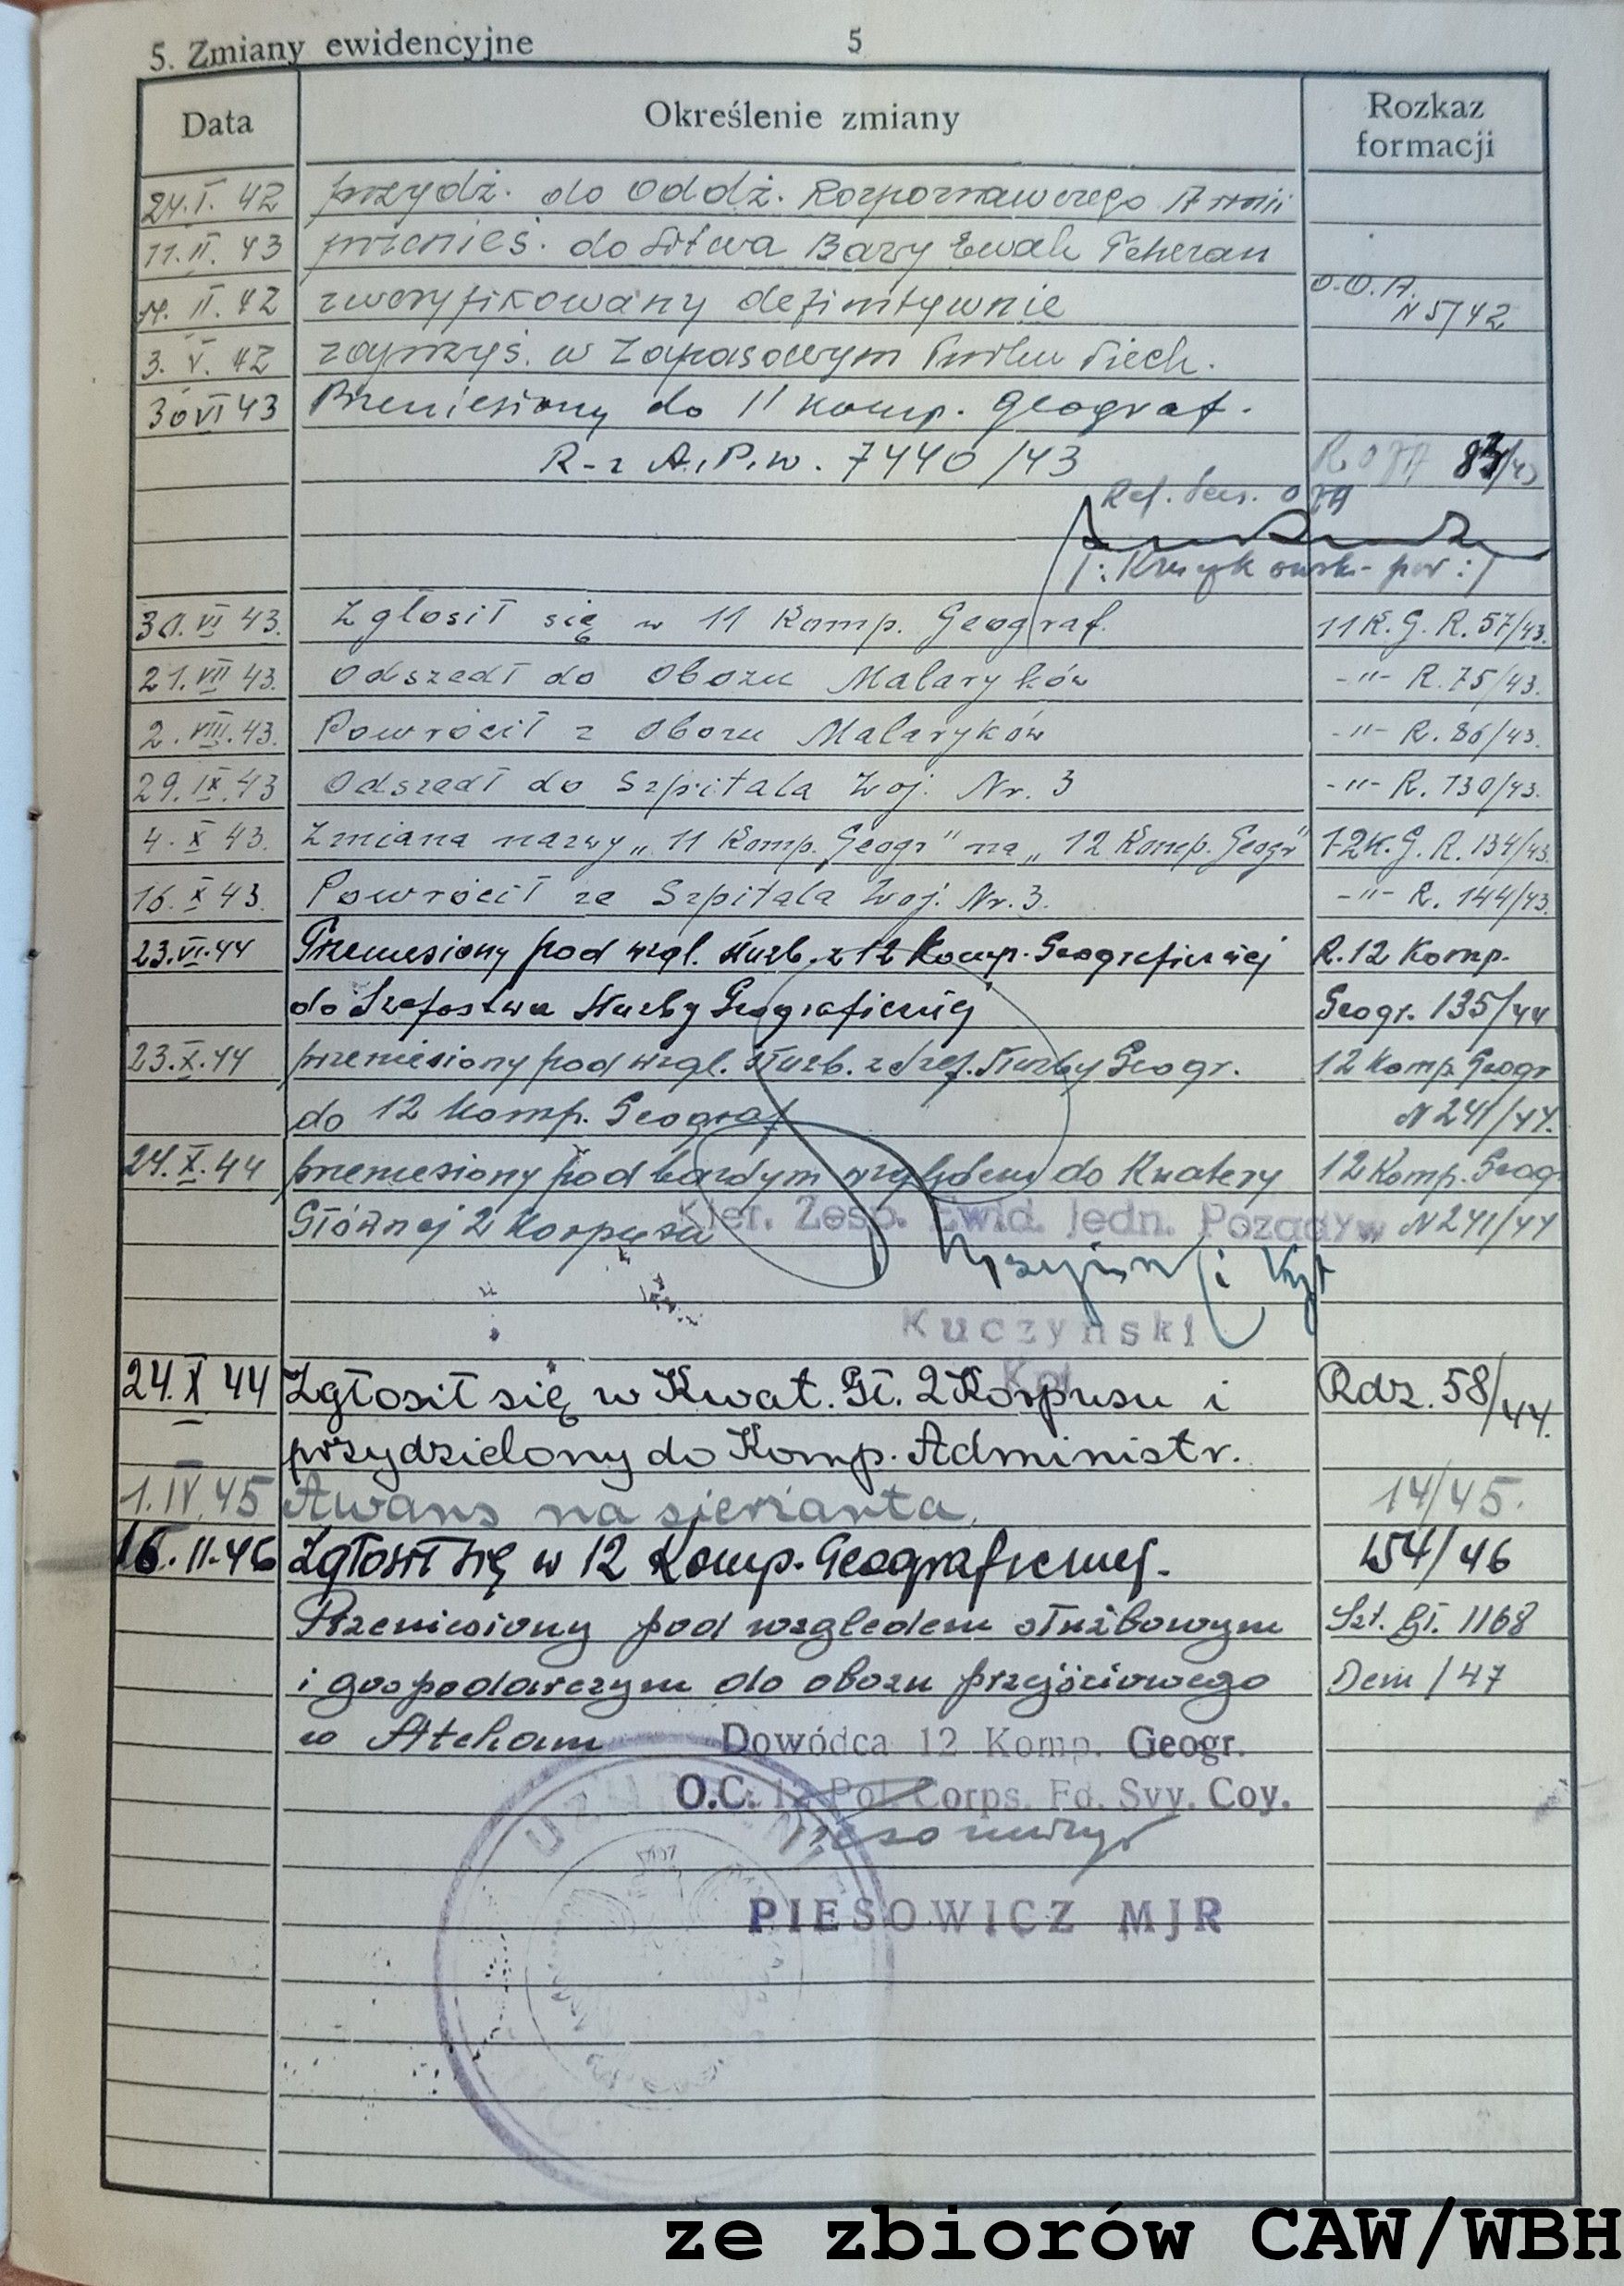 5. Zmiany ewidencyjne 5
Data Określenie zmiany Rozkaz formacji
24.I. 42 przydź. do Oddź. Rozpoznawczego Armii
11.II. 43 przenieś. do Dctwa Bazy Ewak Teheran
II. 42 zweryfikowany definitywnie O.O.A. N 5/42
3. V. 42 zaprzyś. w Zapasowym Pułku Piech.
30 VI 43 Przeniesiony do 11 komp. geograf.
R-z A.P.W. 7440/43
Ref. Pers.
30. VI 43. Zgłosił się w 11 Komp. Geograf. 11 K.G. R. 57/43.
21. VII 43. Odszedł do Obozu Malaryków -"- R. 75/43.
2. VIII. 43. Powrócił z Obozu Malaryków -"- R. 86/43.
29. IX. 43 Odszedł do Szpitala Woj. Nr. 3 -"- R. 130/43.
4. X 43. Zmiana nazwy „11 Komp. Geogr" na „12 Komp. Geogr" 12 K.G. R. 134/43.
16. X 43. Powrócił ze Szpitala Woj. Nr. 3. -"- R. 144/43.
23.VI.44 Przeniesiony pod wzgl. służb. z 12 Komp. Geograficznej R. 12 Komp.
do Szefostwa Służby Geograficznej Geogr. 135/44
23.X.44 przeniesiony pod wzgl. służb. z Szef. Służby Geogr. 12 Komp Geogr
do 12 Komp. Geograf N 241/44.
24.X.44 przeniesiony pod każdym względem do Kwatery 12 Komp. Geogr
Głównej 2 Korpusu N 241/44
Kier. Zesp. Ewid. Jedn. Pozadyw
Kuczyński
Kpt.
24. X 44 Zgłosił się w Kwat. Gł. 2 Korpusu i Rdz. 58/44.
przydzielony do Komp. Administr.
1. IV. 45 Awans na sierżanta. 14/45.
16. II. 46 Zgłosił się w 12 Komp. Geograficznej. 154/46
Przeniesiony pod względem służbowym Szt. Gł. 1168
i gospodarczym do obozu przejściowego Dem / 47
w Atcham
Dowódca 12 Komp. Geogr.
O.C. 12 Pol. Corps. Fd. Svy. Coy.
PIESOWICZ MJR
ze zbiorów CAW/WBH